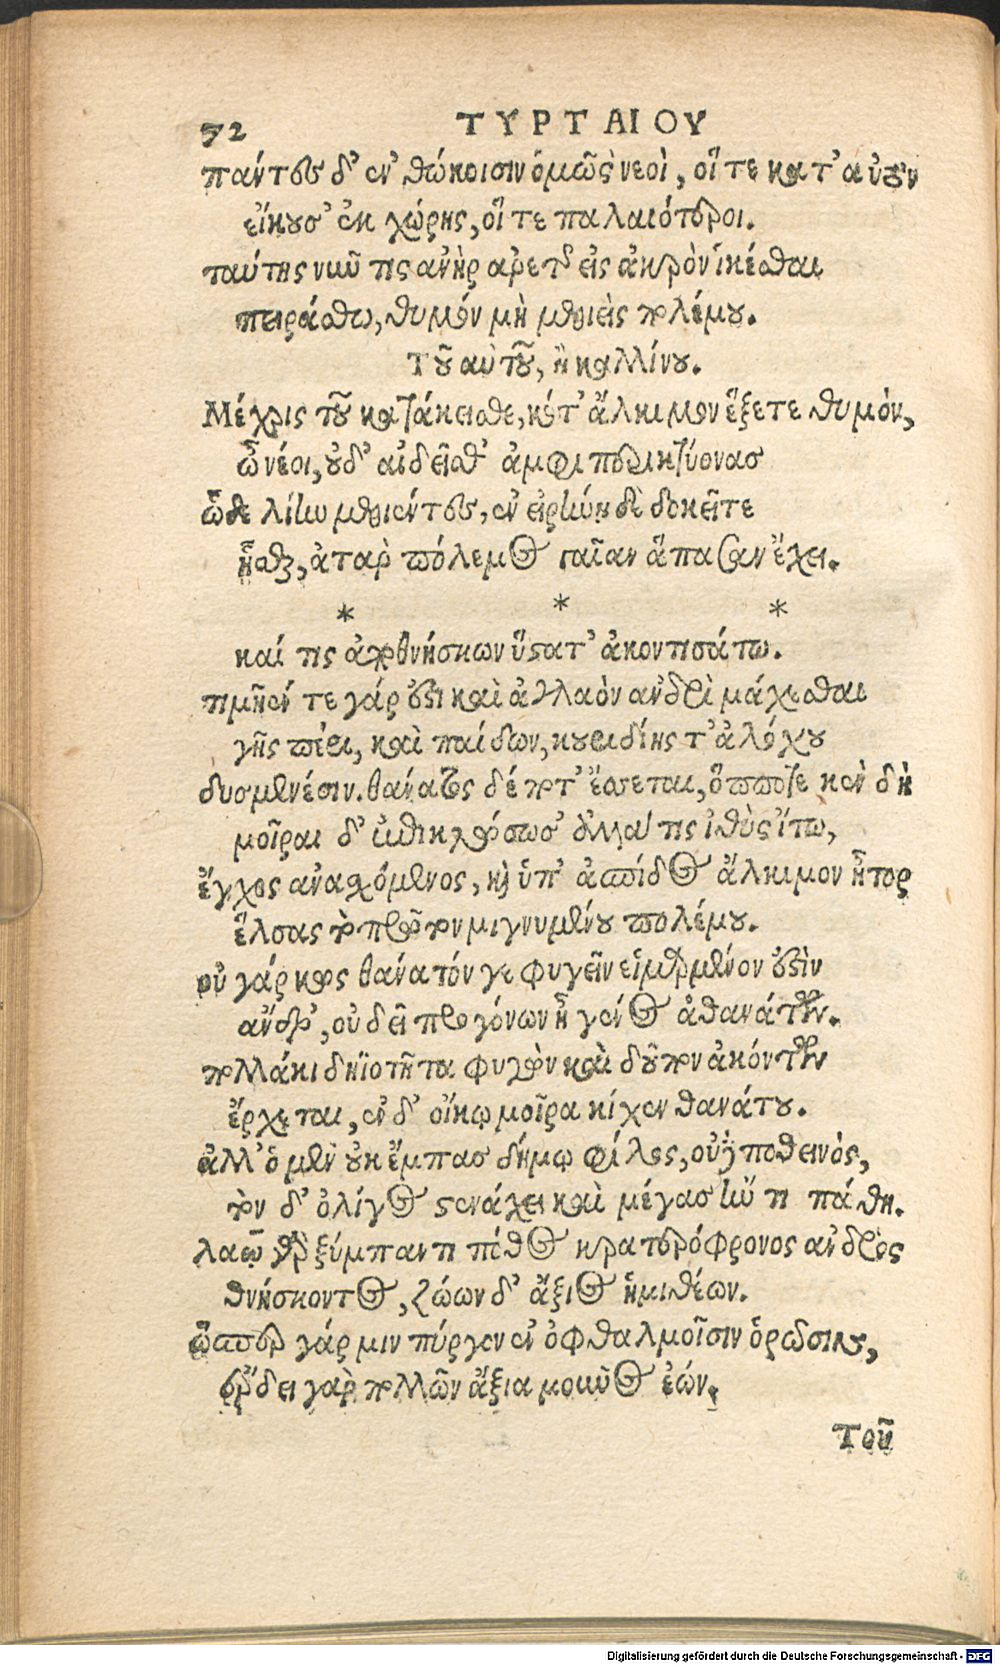 72 ΤΥΡΤΑΙΟΥ
πάντες δ' ἐν θώκοισιν ὁμῶς νεοὶ, οἵ τε κατ' αὐτὸν
εἴκουσ' ἐκ χώρης, οἵ τε παλαιότεροι.
ταύτης νῦν τις ἀνὴρ ἀρετῆς εἰς ἄκρον ἱκέσθαι
πειράσθω, θυμὸν μὴ μεθιεὶς πολέμου.
Τοῦ αὐτοῦ, ἢ καλλίνου.
Μέχρις τοῦ κατάκεισθε, κότ' ἄλκιμον ἕξετε θυμὸν,
ὦ νέοι, οὐδ' αἰδεῖσθ' ἀμφιπερικτίονας
ὧδε λίην μεθιέντες, ἐν εἰρήνῃ δὲ δοκεῖτε
ἧσθαι, ἀτὰρ πόλεμος γαῖαν ἅπασαν ἔχει.
* * *
καί τις ἀποθνήσκων ὕστατ' ἀκοντισάτω.
τιμῆέν τε γάρ ἐστι καὶ ἀγλαὸν ἀνδρὶ μάχεσθαι
γῆς πέρι, καὶ παίδων, κουριδίης τ' ἀλόχου
δυσμενέσιν. θάνατος δέ ποτ' ἔσσεται, ὅπποτε κεν δὴ
μοῖραι δ' ἐπικλώσωσ' ἀλλά τις ἰθὺς ἴτω,
ἔγχος ἀνασχόμενος, καὶ ὑπ' ἀσπίδος ἄλκιμον ἦτορ
ἔλσας τὸ πρῶτον μιγνυμένου πολέμου.
οὐ γάρ κως θάνατόν γε φυγεῖν εἱμαρμένον ἐστὶν
ἄνδρ', οὐδ' εἰ προγόνων ᾖ γένος ἀθανάτων.
πολλάκι δηϊοτῆτα φυγὼν καὶ δοῦπον ἀκόντων
ἔρχεται, ἐν δ' οἴκῳ μοῖρα κίχεν θανάτου.
ἀλλ' ὁ μὲν οὐκ ἔμπας δήμῳ φίλος, οὐδὲ ποθεινός,
τὸν δ' ὀλίγος στενάχει καὶ μέγας ἤν τι πάθῃ.
λαῷ γὰρ ξύμπαντι πόθος κρατερόφρονος ἀνδρὸς
θνήσκοντος, ζώων δ' ἄξιος ἡμιθέων.
ὥσπερ γάρ μιν πύργον ἐν ὀφθαλμοῖσιν ὁρῶσιν,
ἔρδει γὰρ πολλῶν ἄξια μοῦνος ἐών.
Τοῦ
Digitalisierung gefördert durch die Deutsche Forschungsgemeinschaft - DFG